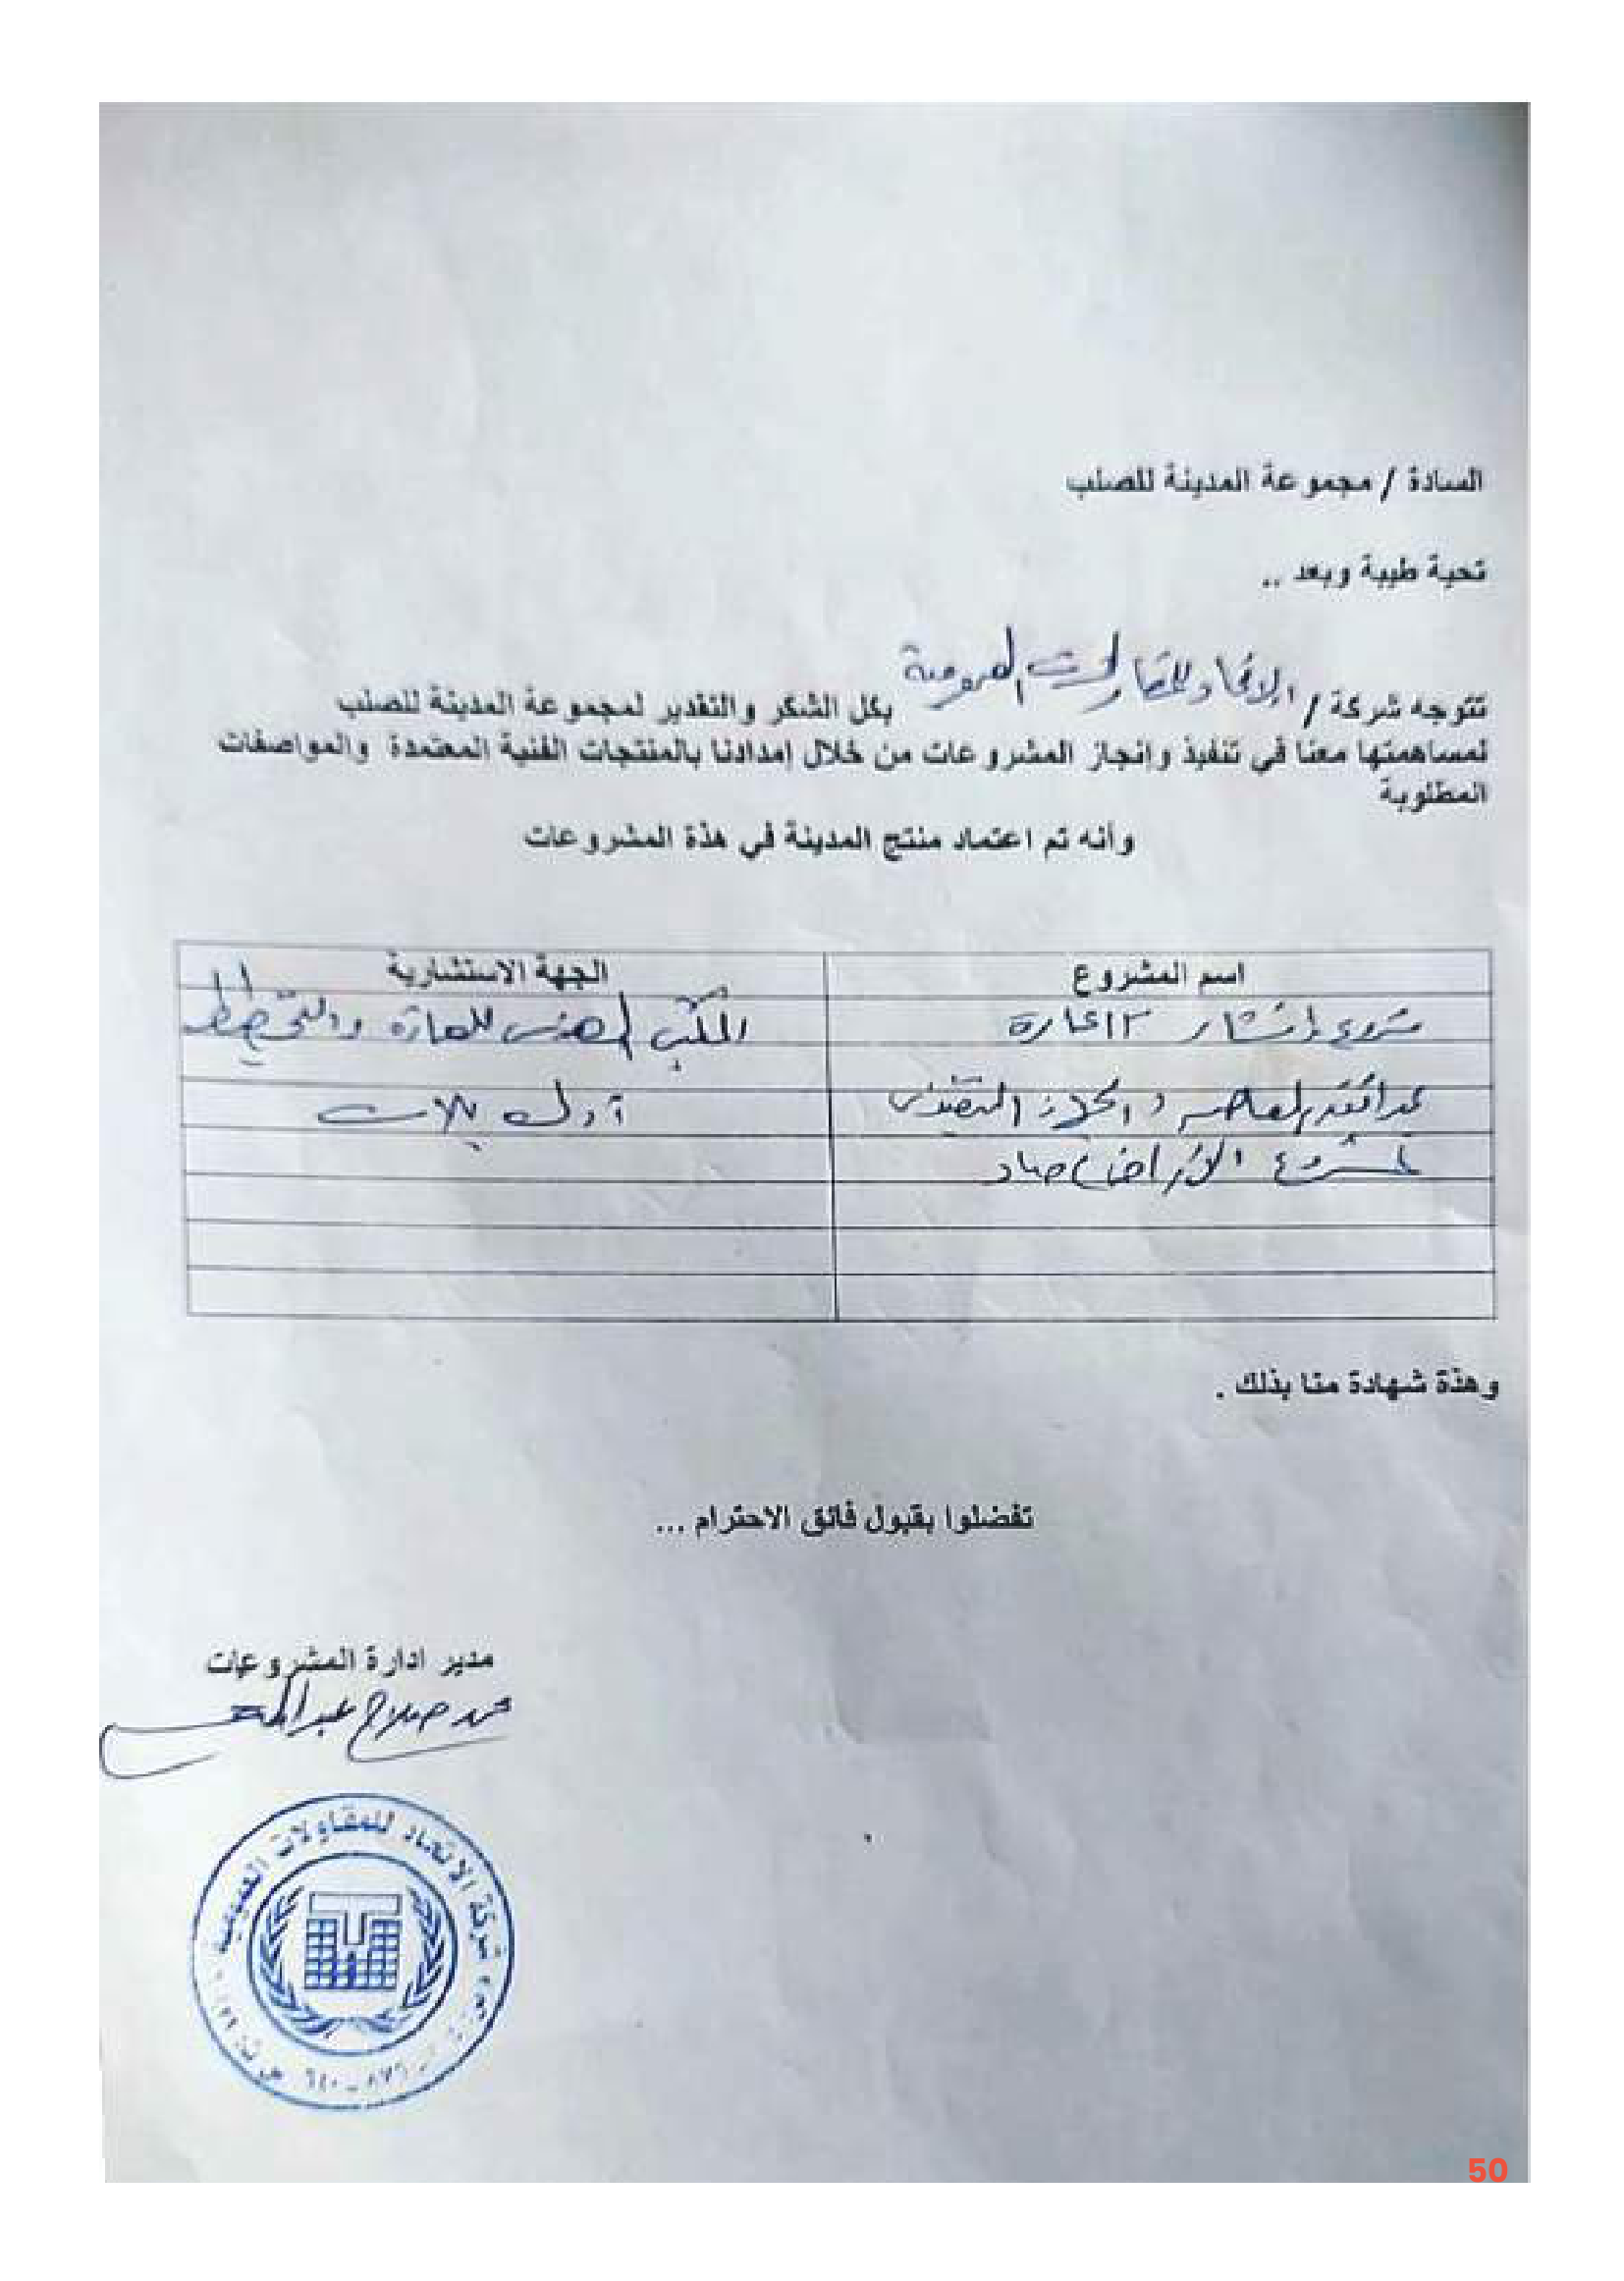 السادة / مجموعة المدينة للصلب
تحية طيبة وبعد ..
تتوجه شركة / الاتحاد للمقاولات العمومية بكل الشكر والتقدير لمجموعة المدينة للصلب
لمساهمتها معنا في تنفيذ وإنجاز المشروعات من خلال إمدادنا بالمنتجات الفنية المعتمدة والمواصفات
المطلوبة
وأنه تم اعتماد منتج المدينة في هذة المشروعات
اسم المشروع الجهة الاستشارية
مشروع إنشاء عمارة المكتب الهندسى للعمارة والتخطيط
وهذة شهادة منا بذلك .
تفضلوا بقبول فائق الاحترام ...
مدير ادارة المشروعات
محمد صلاح
شركة الاتحاد للمقاولات العمومية
50